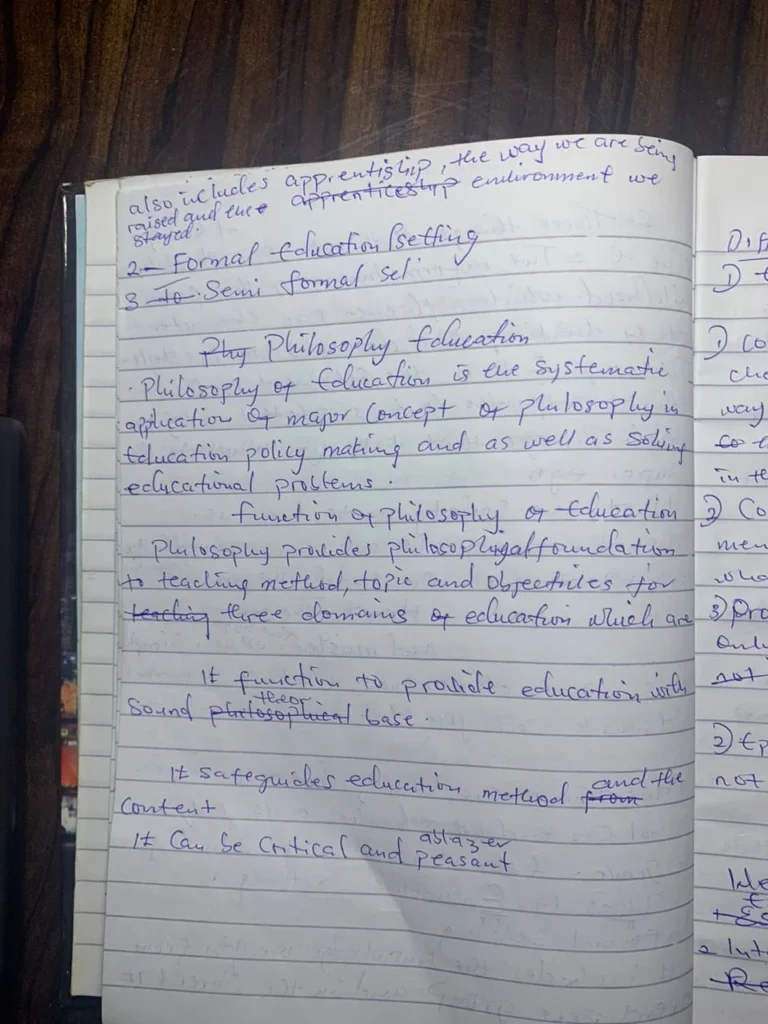 also includes apprentiship, the way we are being
raised and the apprenticeship environment we
stayed.
2 - Formal Education / setting
3 - To. Semi formal set
Phy Philosophy Education
. Philosophy of Education is the systematic
application of major concept of philosophy in
Education policy making and as well as solving
educational problems.
function of philosophy of Education
Philosophy provides philosophical foundation
to teaching method, topic and objectives for
teaching three domains of education which are
It function to provide education with
theor
Sound philosophical base.
It safeguides education method from and the
Content
It can be Critical and
peasant
Diff
1) Co
che
way
in the
2) Co
men
who
3) Pro
Only
not
2) Ep
not
Ide
+ Es
2 Int
Re